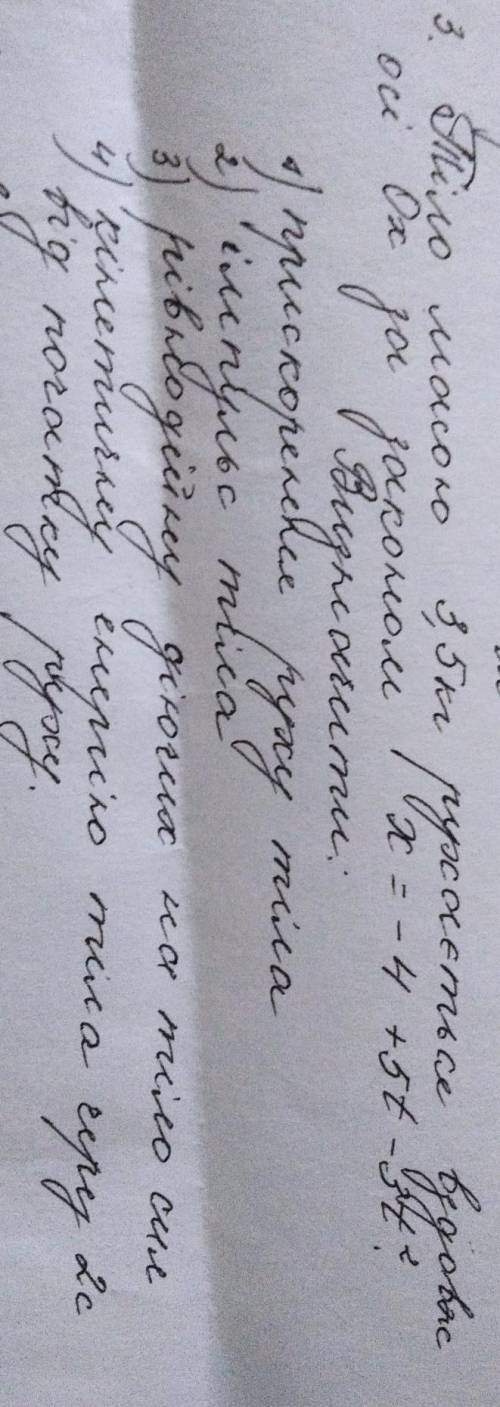 3. Тіло масою 3,5 кг рухається вздовж
осі Ох за законом x = -4 + 5t - 3t²
Визначити:
1) прискорення руху тіла
2) імпульс тіла
3) рівнодійну діючих на тіло сил
4) кінетичну енергію тіла через 2с
від початку руху.